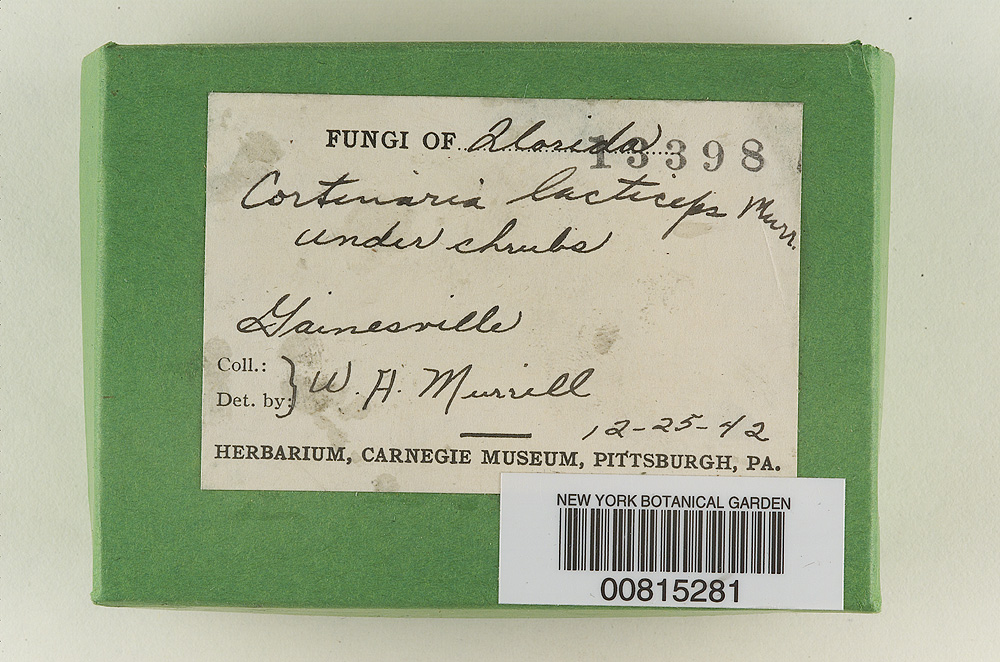 FUNGI OF Florida 13398
Cortinaria lacticeps Murr.
under shrubs
Gainesville
Coll.:
Det. by: } W. A. Murrill
12-25-42
HERBARIUM, CARNEGIE MUSEUM, PITTSBURGH, PA.
NEW YORK BOTANICAL GARDEN
00815281